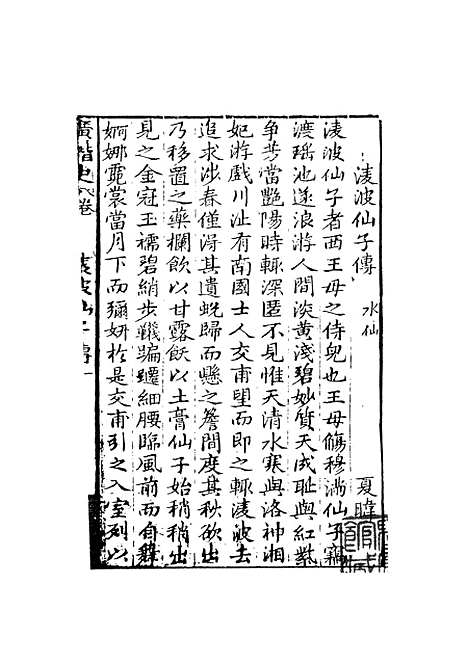 淩波仙子傳 水仙 夏暐
淩波仙子者西王母之侍兒也王母觴穆滿仙子竊
渡瑶池遂浪游人間淡黃淺碧妙質天成耻與紅紫
争芳當艷陽時輙深匿不見惟天清水寒與洛神湘
妃游戲川沚有南國士人交甫朢而即之輙淩波去
追求涉春僅淂其遺蛻歸而懸之簷間度其秋欲出
乃移置之藥欄飲以甘露飫以土膏仙子始稍稍出
見之金冠玉襦碧綃步韈骗蹮細腰臨風前而自舞
婀娜霓裳當月下而彌妍於是交甫引之入室列以
廣諧史 卷 淩波仙子傳 一